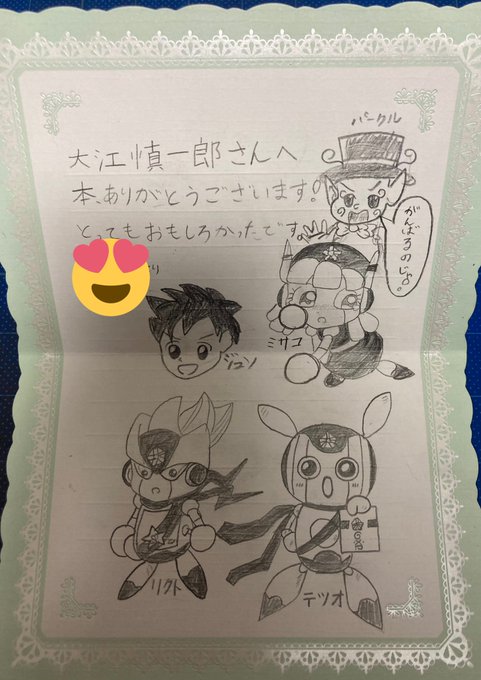 大江慎一郎さんへ
本、ありがとうございます。
とってもおもしろかったです。
り
パークル
がんばるのじゃ。
ジュン
ミサコ
リクト
テツオ